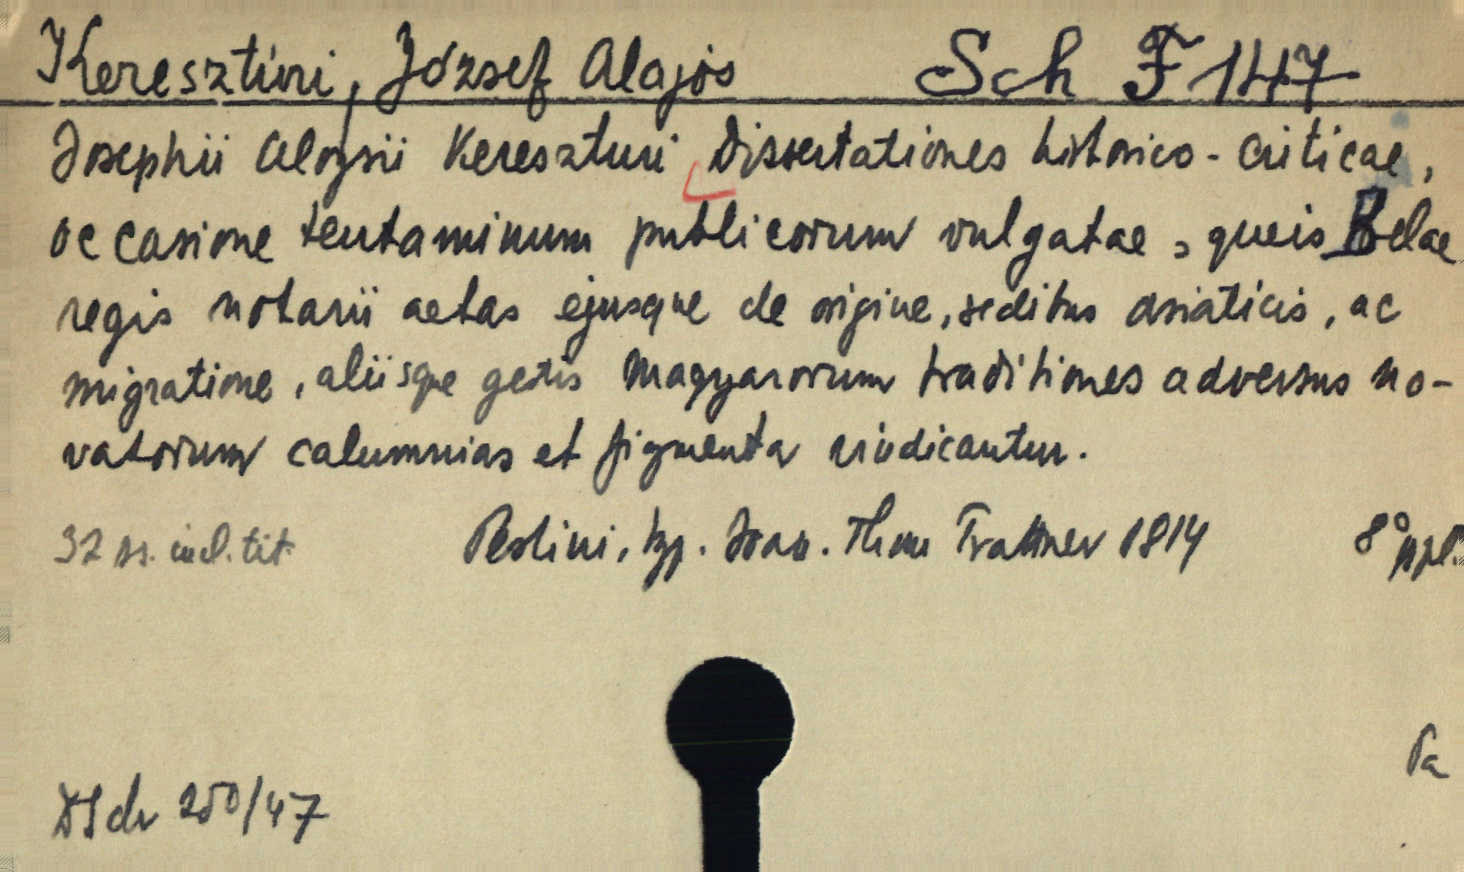 Keresztúri, József Alajos Sch F 147
Josephii Aloysii Kereszturi Dissertationes historico-criticae,
occasione tentaminum publicorum vulgatae, queis Belae
regis notarii aetas ejusque de origine, sedibus asiaticis, ac
migratione, aliisque gestis Magyarorum traditiones adversus no-
vatorum calumnias et figmenta vindicantur.
32 ss. incl. tit. Pestini, typ. Joan. Thom Trattner 1814 8° ppl.
Pa
DSch 250/47